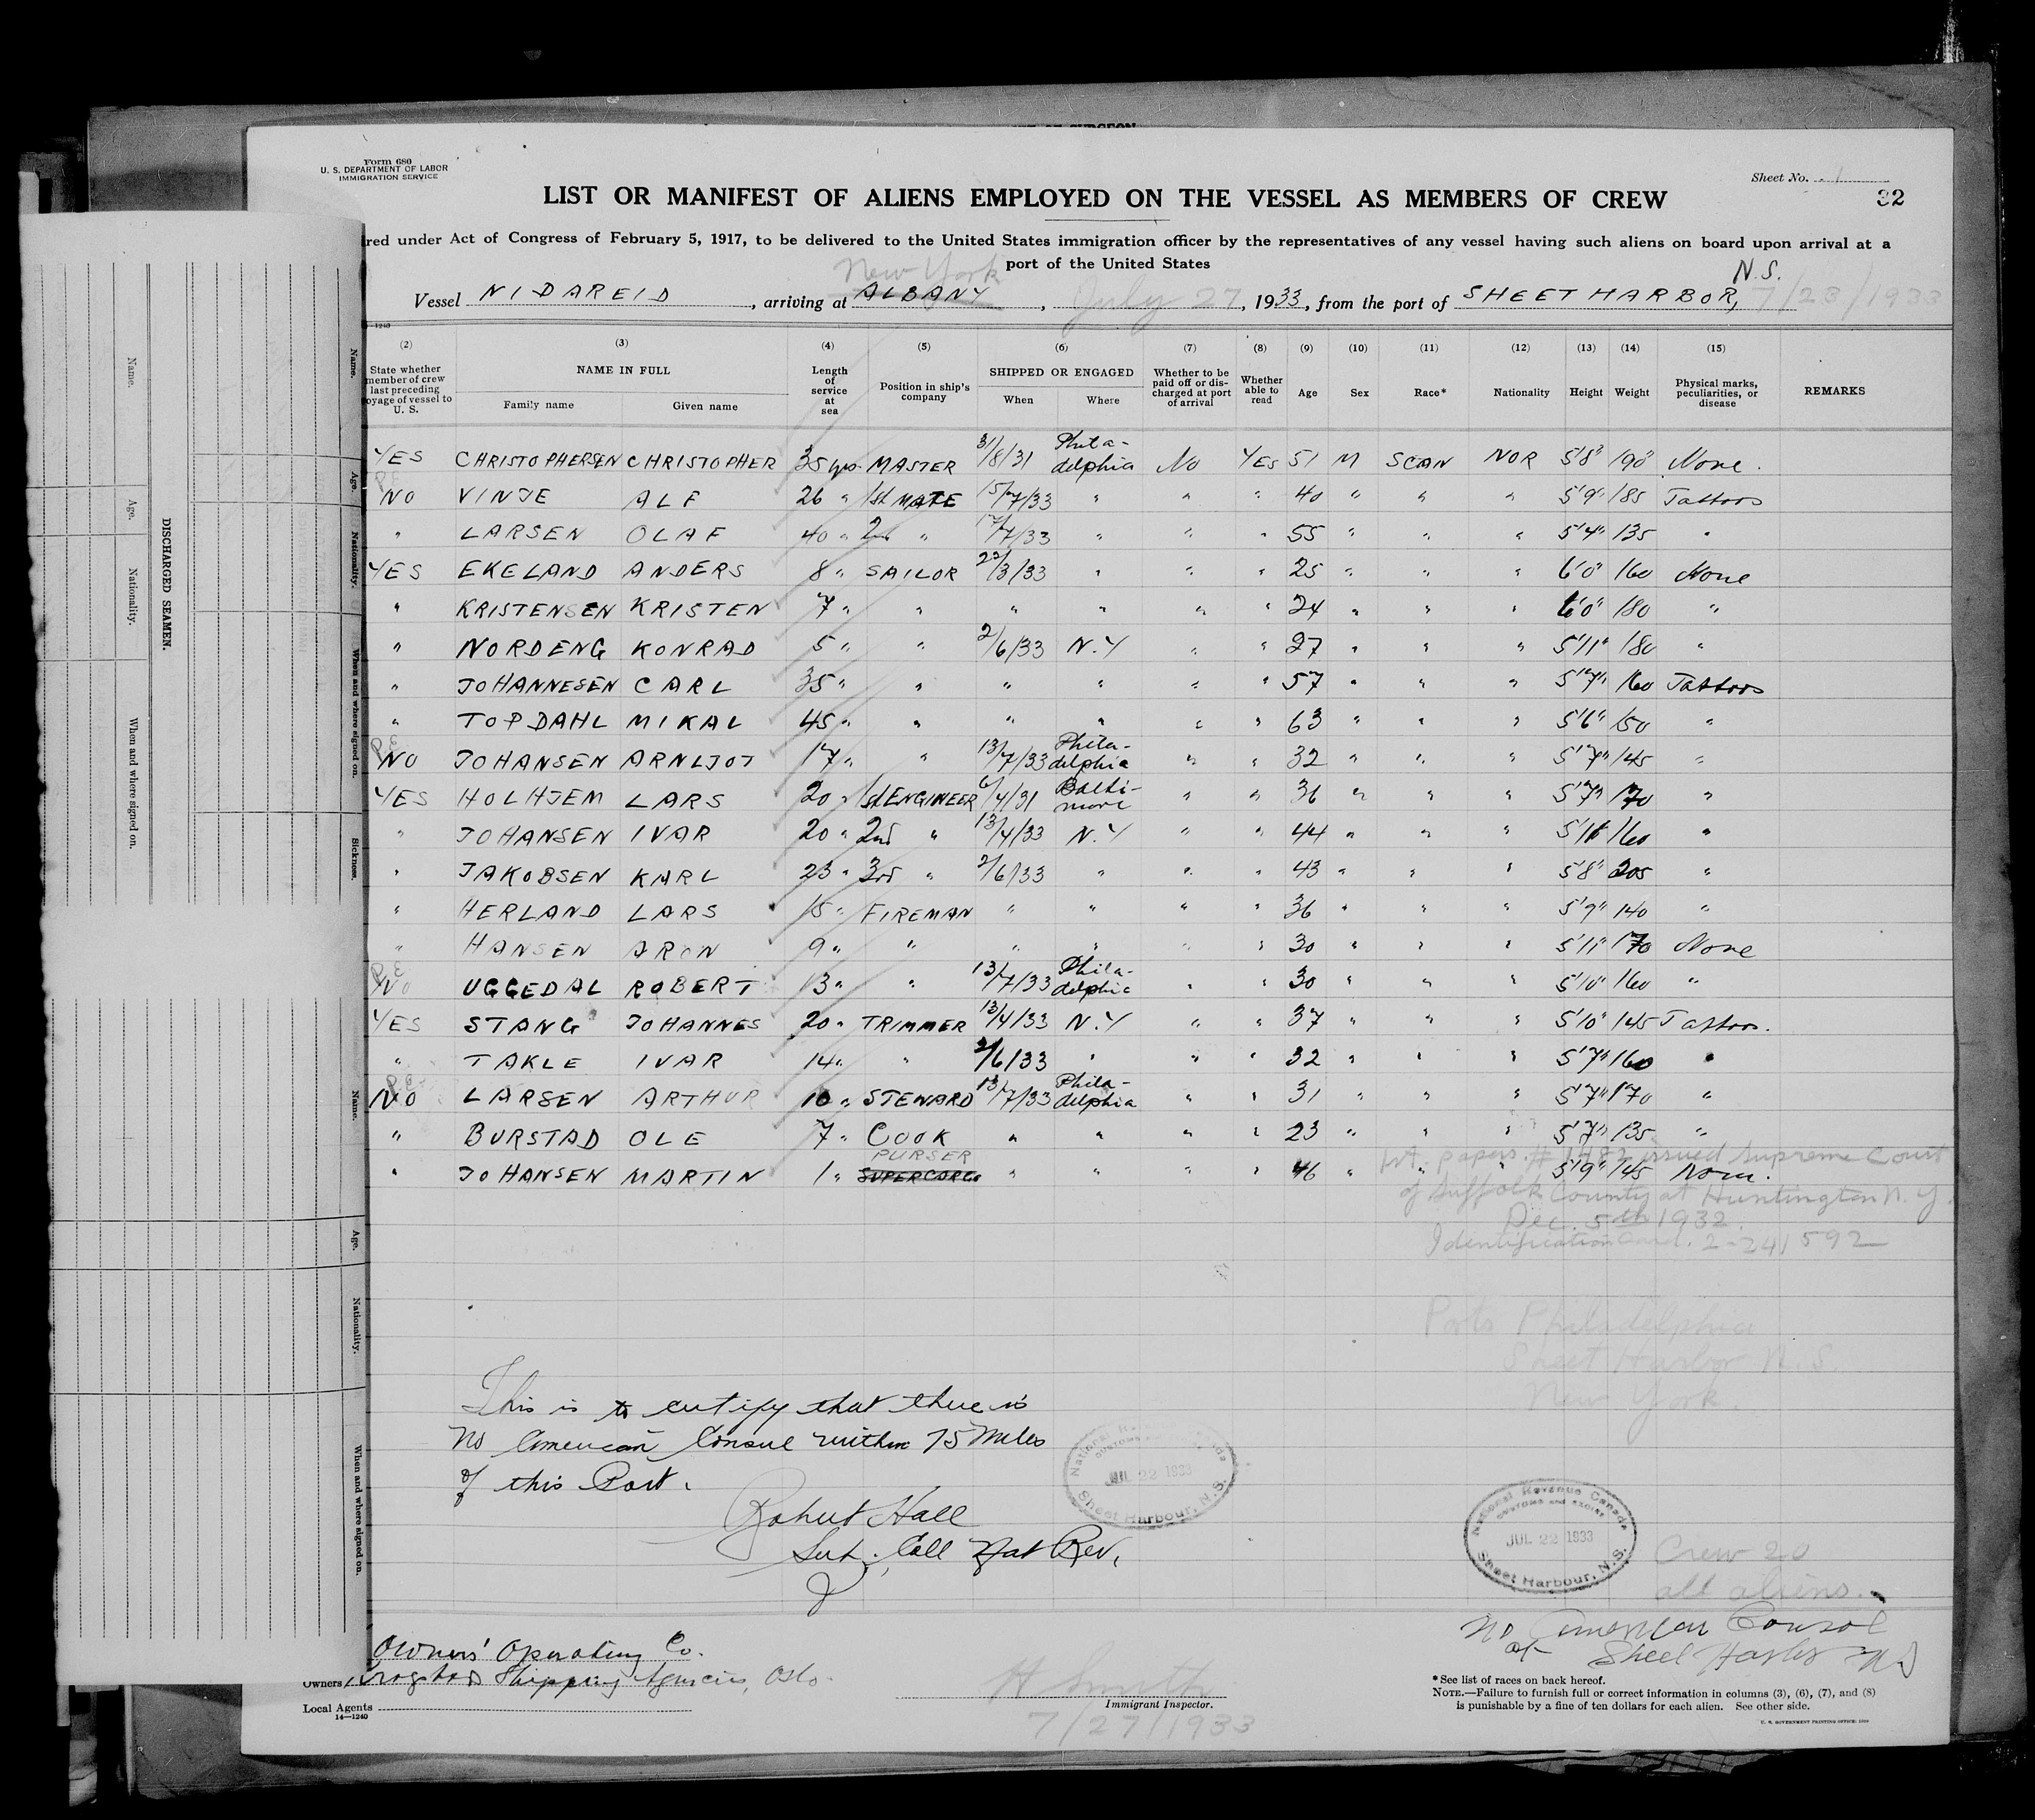 Form 680
U. S. DEPARTMENT OF LABOR
IMMIGRATION SERVICE
Sheet No. 1
LIST OR MANIFEST OF ALIENS EMPLOYED ON THE VESSEL AS MEMBERS OF CREW
32
red under Act of Congress of February 5, 1917, to be delivered to the United States immigration officer by the representatives of any vessel having such aliens on board upon arrival at a
port of the United States
New York
N.S.
Vessel NIDAREID, arriving at ALBANY, July 27, 1933, from the port of SHEET HARBOR, 7/23/1933
(2) (3) (4) (5) (6) (7) (8) (9) (10) (11) (12) (13) (14) (15)
State whether member of crew last preceding oyage of vessel to U. S.
NAME IN FULL
Family name Given name
Length of service at sea
Position in ship's company
SHIPPED OR ENGAGED
When Where
Whether to be paid off or discharged at port of arrival
Whether able to read
Age Sex Race* Nationality Height Weight
Physical marks, peculiarities, or disease
REMARKS
YES CHRISTOPHERSEN CHRISTOPHER 35 yrs MASTER 31/8/31 Philadelphia No YES 51 M SCAN NOR 5'8" 190 None.
NO VINJE ALF 26 " 1st MATE 15/7/33 " " " 40 " " " 5'9" 185 Tattoos
" LARSEN OLAF 40 " 2nd " 17/7/33 " " " 55 " " " 5'4" 135 "
YES EKELAND ANDERS 8 " SAILOR 22/3/33 " " " 25 " " " 6'0" 160 None
" KRISTENSEN KRISTEN 7 " " " " " " 24 " " " 6'0" 180 "
" NORDENG KONRAD 5 " " 2/6/33 N.Y " " 27 " " " 5'11" 180 "
" JOHANNESEN CARL 35 " " " " " " 57 " " " 5'7" 160 Tattoos
" TOPDAHL MIKAL 45 " " " " " " 63 " " " 5'6" 150 "
NO JOHANSEN ARNLJOT 17 " " 13/7/33 Philadelphia " " 32 " " " 5'7" 145 "
YES HOLHJEM LARS 20 " 1st ENGINEER 6/4/31 Baltimore " " 36 " " " 5'7" 170 "
" JOHANSEN IVAR 20 " 2nd " 13/4/33 N.Y " " 44 " " " 5'11" 160 "
" JAKOBSEN KARL 23 " 3rd " 2/6/33 " " " 43 " " " 5'8" 205 "
" HERLAND LARS 15 " FIREMAN " " " " 36 " " " 5'9" 140 "
" HANSEN ARON 9 " " " " " " 30 " " " 5'11" 170 None
NO UGGEDAL ROBERT 13 " " 13/7/33 Philadelphia " " 30 " " " 5'10" 160 "
YES STANG JOHANNES 20 " TRIMMER 13/4/33 N.Y " " 37 " " " 5'10" 145 Tattoos.
" TAKLE IVAR 14 " " 2/6/33 " " " 32 " " " 5'7" 160 "
NO LARSEN ARTHUR 10 " STEWARD 13/7/33 Philadelphia " " 31 " " " 5'7" 170 "
" BURSTAD OLE 7 " COOK " " " " 23 " " " 5'7" 135 "
PURSER
" JOHANSEN MARTIN 1 " SUPERCARGO " " " " 46 " " 5'9" 145 None.
1st papers # 1482 issued Supreme Court
of Suffolk County at Huntington N.Y.
Dec. 5th 1932.
Identification Card. 2-241592
Ports Philadelphia
Sheet Harbor N.S.
New York.
This is to certify that there is
No American Consul within 75 Miles
of this Port.
Robert Hall
Sub. Coll Nat Rev.
National Revenue Canada
CUSTOMS and EXCISE
JUL 22 1933
Sheet Harbour, N.S.
National Revenue Canada
CUSTOMS and EXCISE
JUL 22 1933
Sheet Harbour, N.S.
Crew 20
all aliens.
No American Consol
at Sheet Harbor NS
Owners' Operating Co.
Owners Shipping Agencies, Oslo.
Local Agents
14—1240
H Smith
Immigrant Inspector.
7/27/1933
*See list of races on back hereof.
NOTE.—Failure to furnish full or correct information in columns (3), (6), (7), and (8)
is punishable by a fine of ten dollars for each alien. See other side.
DISCHARGED SEAMEN.
Name.
Age.
Nationality.
When and where signed on.
Name.
Age.
Nationality.
When and where signed on.
Sickness.
Name.
Age.
Nationality.
When and where signed on.